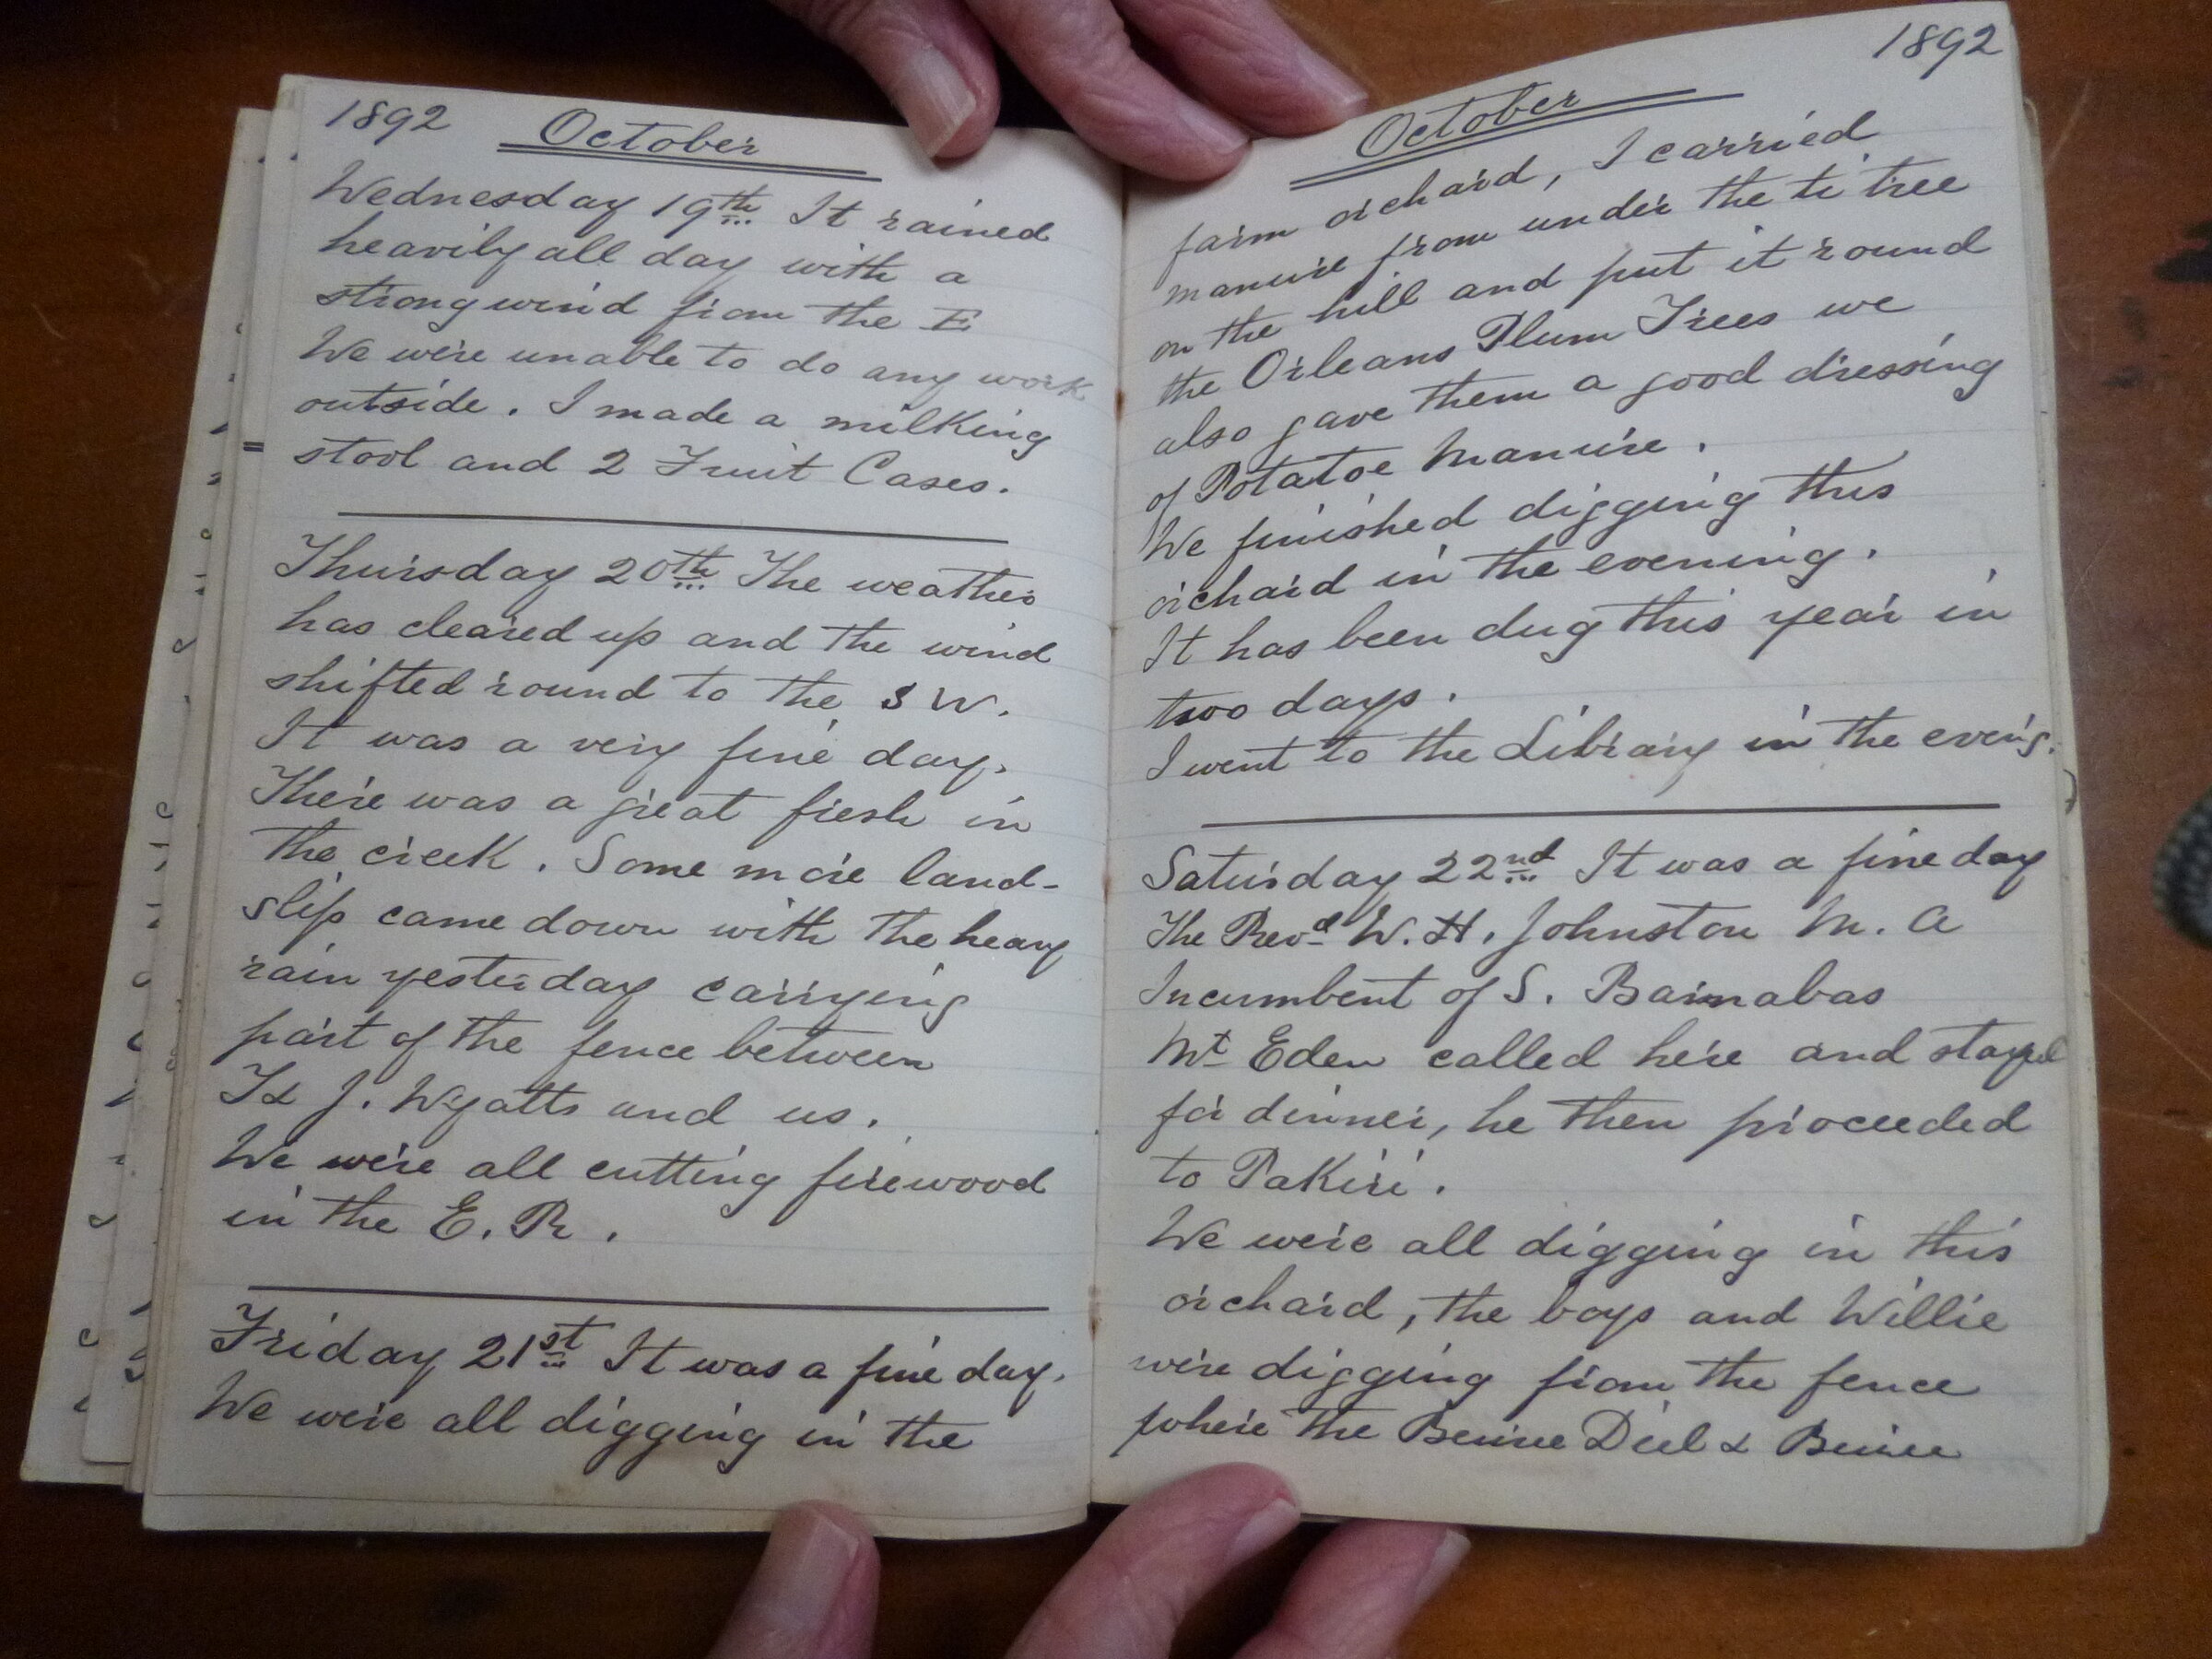 1892 October
Wednesday 19th It rained
heavily all day with a
strong wind from the E
We were unable to do any work
outside. I made a milking
stool and 2 Fruit Cases.
Thursday 20th The weather
has cleared up and the wind
shifted round to the S W.
It was a very fine day.
There was a great fresh in
the creek. Some more land-
slip came down with the heavy
rain yesterday carrying
part of the fence between
J. Wyatts and us.
We were all cutting firewood
in the E. R.
Friday 21st It was a fine day.
We were all digging in the
1892
October
farm orchard, I carried
manure from under the ti tree
on the hill and put it round
the Orleans Plum Trees we
also gave them a good dressing
of Potatoe Manure.
We finished digging this
orchard in the evening.
It has been dug this year in
two days.
I went to the Library in the even'g.
Saturday 22nd It was a fine day
The Revd W. H. Johnston M. A
Incumbent of S. Barnabas
Mt Eden called here and stayed
for dinner, he then proceeded
to Pakiri.
We were all digging in this
orchard, the boys and Willie
were digging from the fence
where the Beurre Diel & Beurre